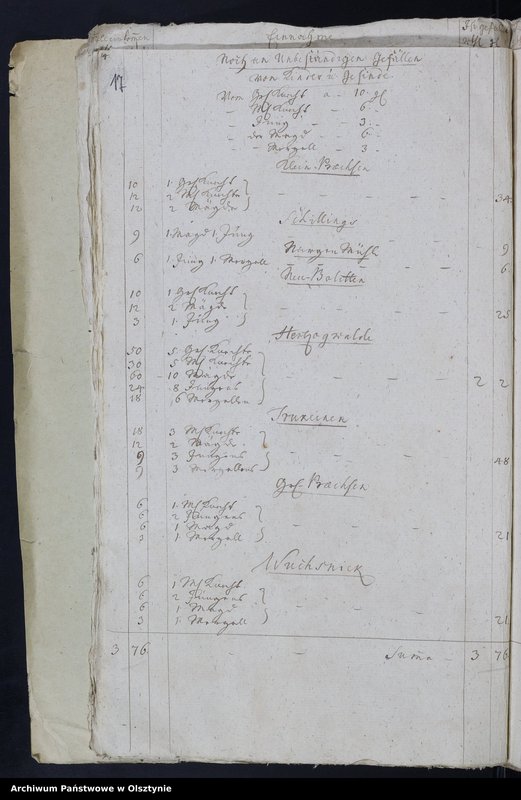 Einnahme
17
Noch an Unbeständigen Gefällen
von Kinder u Gesinde
Vom Gr Knecht a - 10 gl
- Ml Knecht - 6 -
- Jung - 3 -
- der Magd - 6 -
- Mergell - 3 -
Klein Braxein
10 1 Gr Knecht
12 2 Ml Knechte
12 2 Mägde - - - - 34
Schillings
9 1 Magd 1 Jung - - - 9
Nargen Mühl
6 1 Jung 1 Mergell - - 6
Neu-Bolitten
10 1 Gr Knecht
12 2 Mägde
3 1 Jung - - - - 25
Hertzogwalde
50 5 Gr Knechte
30 5 Ml Knechte
60 10 Mägde
24 8 Jungens
18 6 Mergellen - - - - 2 2
18 3 Ml Knechte
12 2 Mägde
9 3 Jungens
9 3 Mergellens - - - 48
6 1 Ml Knecht
6 2 Jungens
6 1 Magd
3 1 Mergell - - - - 21
Wuchsnick
6 1 Ml Knecht
6 2 Jungens
6 1 Magd
3 1 Mergell - - - - 21
3 76 - - Suma - 3 76
Archiwum Państwowe w Olsztynie